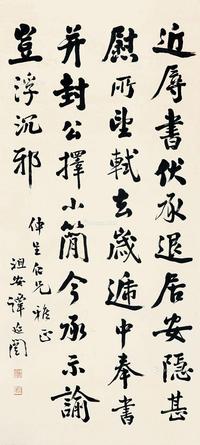 近辱書伏承退居安隱甚
慰所望軾去歲遞中奉書
并封公擇小簡今承示諭
豈浮沉邪
仲生仁兄雅正
祖安譚延闓